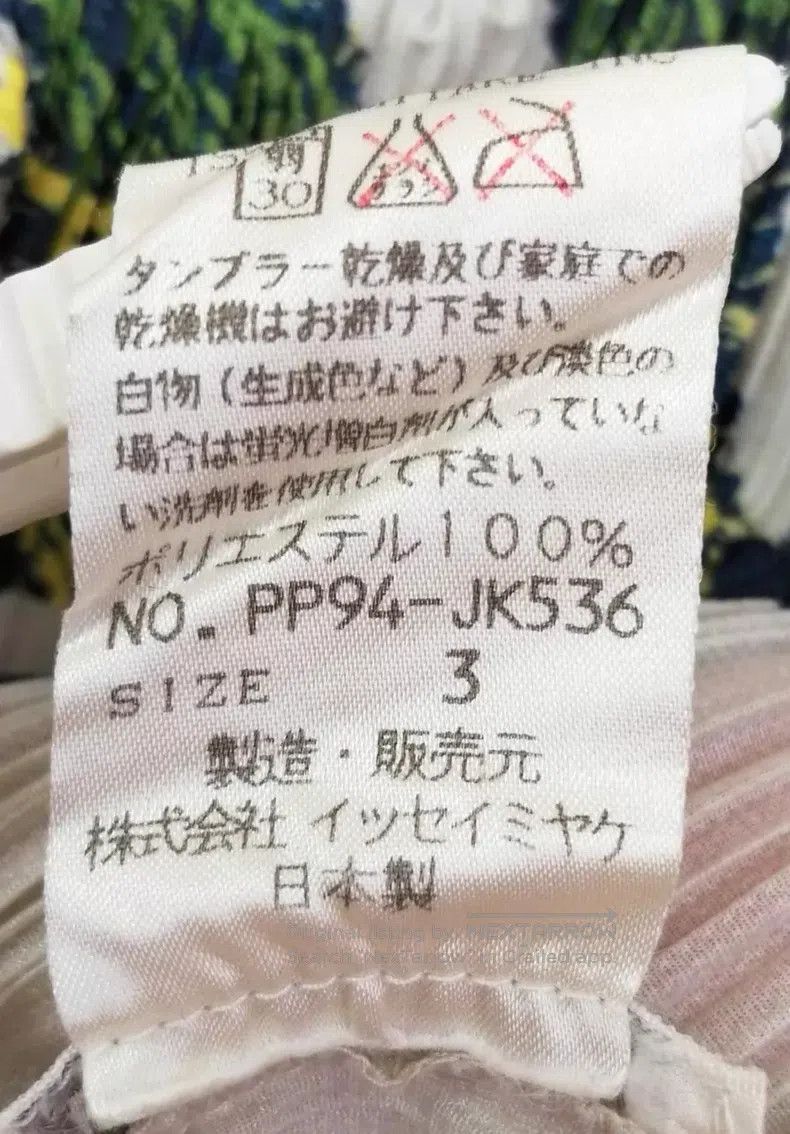 弱
30
エンソ
サラシ
タンブラー乾燥及び家庭での
乾燥機はお避け下さい。
白物(生成色など)及び淡色の
場合は蛍光増白剤が入っていな
い洗剤を使用して下さい。
ポリエステル100%
NO. PP94-JK536
SIZE 3
製造・販売元
株式会社 イッセイミヤケ
日本製
Original listing by NEXTARROW
Search "Nextarrow" in Grailed app